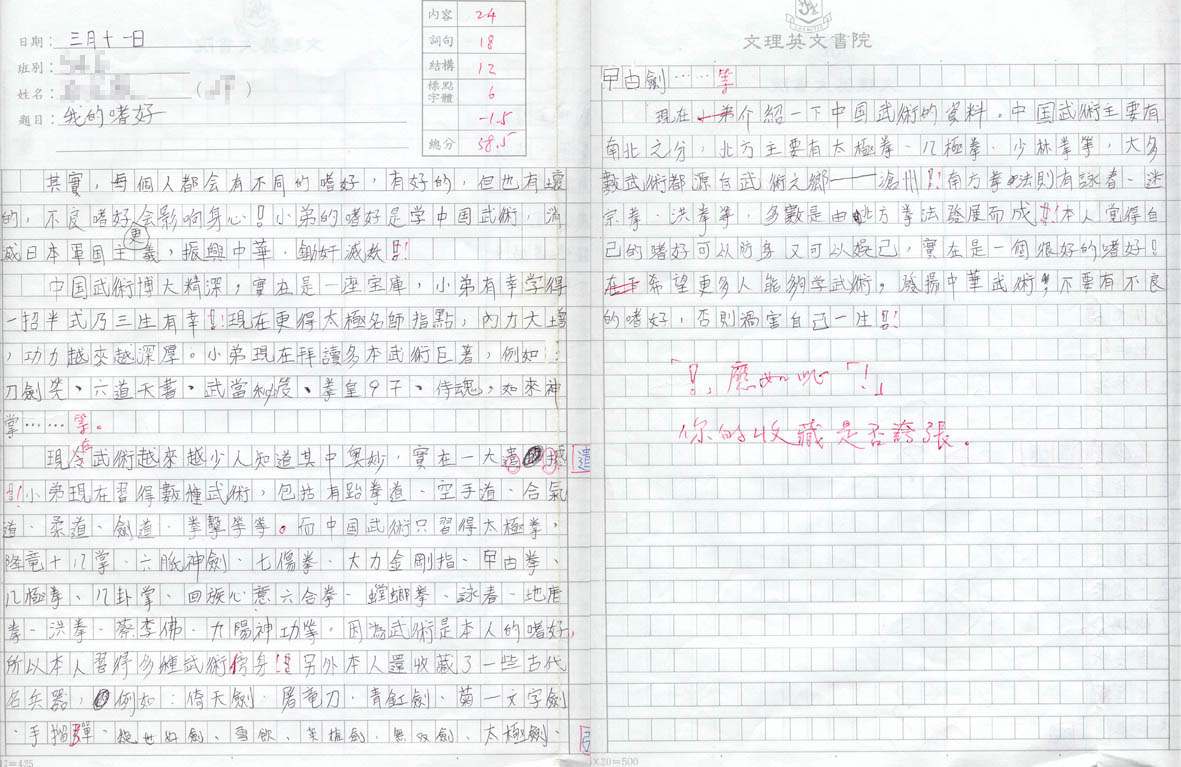 日期：三月十一日
班別：
題目：我的嗜好
內容 24
詞句 18
結構 12
標點字體 6
-1.5
總分 58.5
其實，每個人都会有不同的嗜好，有好的，但也有壞
的，不良嗜好会影响身心！！小弟的嗜好是学中国武術，消
滅日本軍国主義，振興中華，鋤奸滅敵！！
中国武術博大精深，實在是一座宝庫，小弟有幸学得
一招半式乃三生有幸！！現在更得太極名師指點，內力大增
，功力越來越深厚。小弟現在拜讀多本武術巨著，例如：
刀劍笑、六道天書、武當秘笈、拳皇97、侍魂，如來神
掌……等。
現今武術越來越 人知道其中奧妙，實在一大 憾
遺
！！小弟現在習得數種武術，包括有跆拳道、空手道、合氣
道、柔道、劍道、拳擊等等。而中国武術只習得太極拳，
降竜十八掌、六脈神劍、七傷拳、大力金剛指、曱甴拳、
八極拳、八卦掌、回族心意六合拳、螳螂拳、詠春、地 
拳、洪拳、蔡李佛、九陽神功等。因為武術是本人的嗜好，
所以本人習得多種武術 身！！另外本人還收藏了一些古代
名兵器，例如：倚天劍、屠竜刀、青釭劍、菊一文字劍
、手榴彈、 劍、雪飲、 劍、無双劍、太極劍、
=425
文理英文書院
曱甴劍……等
現在小弟介紹一下中国武術的資料。中国武術主要有
南北之分，北方主要有太極拳、八極拳、少林拳等，大多
數武術都源自武術之鄉——滄州！！南方拳法則有詠春、迷
宗拳、洪拳等，多數是由北方拳法發展而成！！本人覺得自
己的嗜好可以防身又可以娛己，實在是一個很好的嗜好！
希望更多人能夠学武術，發揚中華武術，不要有不良
的嗜好，否則禍害自己一生！！
「！，應如此「！」
你的收藏是否誇張。
X20=500